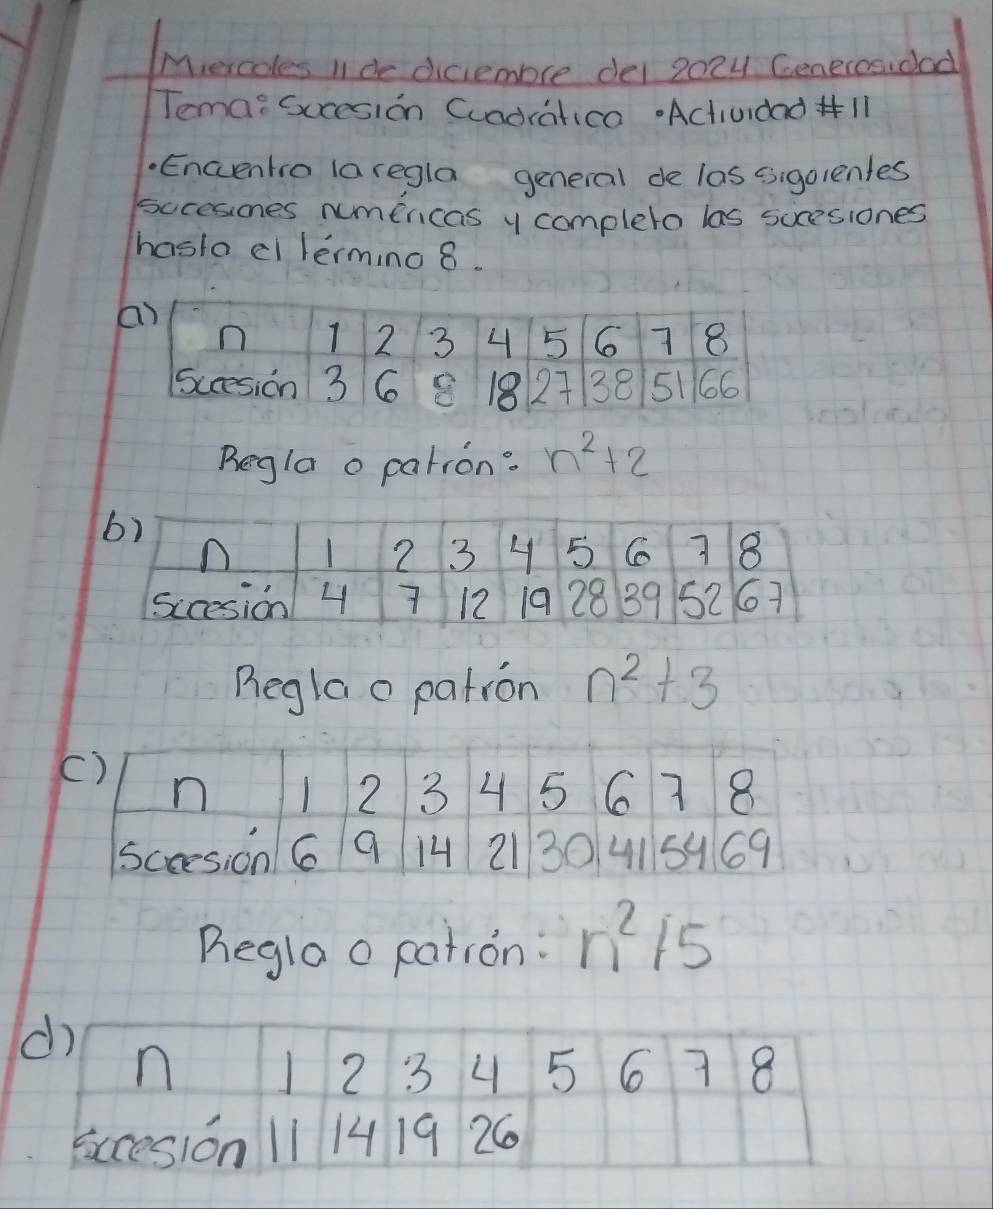 Miercoles 11 de diciembre del 2024 Generosidad
Tema: Sucesión Cuadrática • Actividad #11
• Encuentro la regla general de las siguientes
sucesiones numéricas y completo las sucesiones
hasta el término 8.
a) n 1 2 3 4 5 6 7 8
Sucesión 3 6 8 18 27 38 51 66
Regla o patrón: n²+2
b) n 1 2 3 4 5 6 7 8
Sucesión 4 7 12 19 28 39 52 67
Regla o patrón n²+3
c) n 1 2 3 4 5 6 7 8
Sucesión 6 9 14 21 30 41 54 69
Regla o patrón: n²+5
d) n 1 2 3 4 5 6 7 8
Sucesión 11 14 19 26